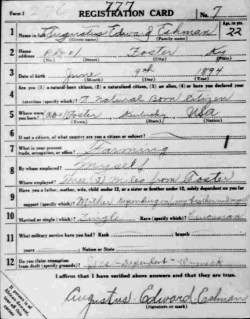 Form 1
777
REGISTRATION CARD
No. 7
1 Name in full Augustus Edward Eshman
(Given name) (Family name)
Age, in yrs. 22
2 Home address Foster Ky
(No.) (Street) (City) (State)
3 Date of birth June 9th 1894
(Month) (Day) (Year)
4 Are you (1) a natural-born citizen, (2) a naturalized citizen, (3) an alien, (4) or have you declared your
intention (specify which)? A Natural Born Citizen
5 Where were you born? Foster Kentucky USA
(Town) (State) (Nation)
6 If not a citizen, of what country are you a citizen or subject?
7 What is your present trade, occupation, or office? Farming
8 By whom employed? Myself
Where employed? Three (3) miles from Foster
9 Have you a father, mother, wife, child under 12, or a sister or brother under 12, solely dependent on you for
support (specify which)? Mother
10 Married or single (which)? Single Race (specify which)? Caucasian
11 What military service have you had? Rank ; branch
years ; Nation or State
12 Do you claim exemption from draft (specify grounds)? Yes - Dependent
I affirm that I have verified above answers and that they are true.
Augustus Edward Eshman
(Signature or mark)